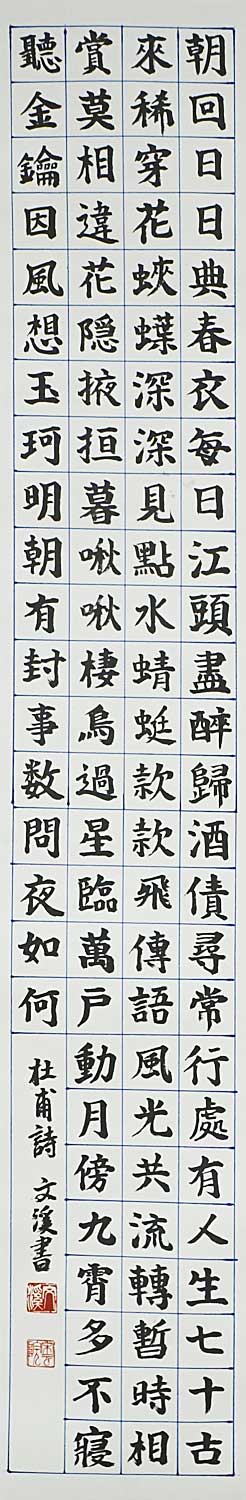 朝回日日典春衣每日江頭盡醉歸酒債尋常行處有人生七十古
來稀穿花蛺蝶深深見點水蜻蜓款款飛傳語風光共流轉暫時相
賞莫相違花隱掖垣暮啾啾棲鳥過星臨萬戶動月傍九霄多不寢
聽金鑰因風想玉珂明朝有封事数問夜如何
杜甫詩 文溪書
文溪